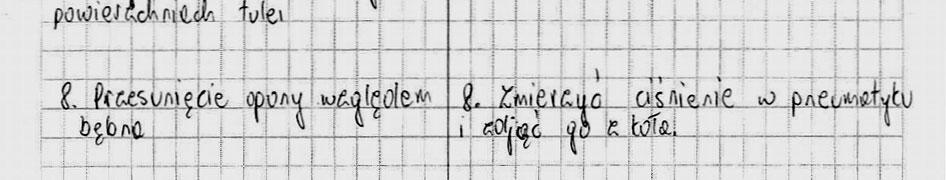 powierzchniach tulei
8. Przesunięcie opony względem
bębna
8. Zmierzyć ciśnienie w pneumatyku
i zdjąć go z koła.